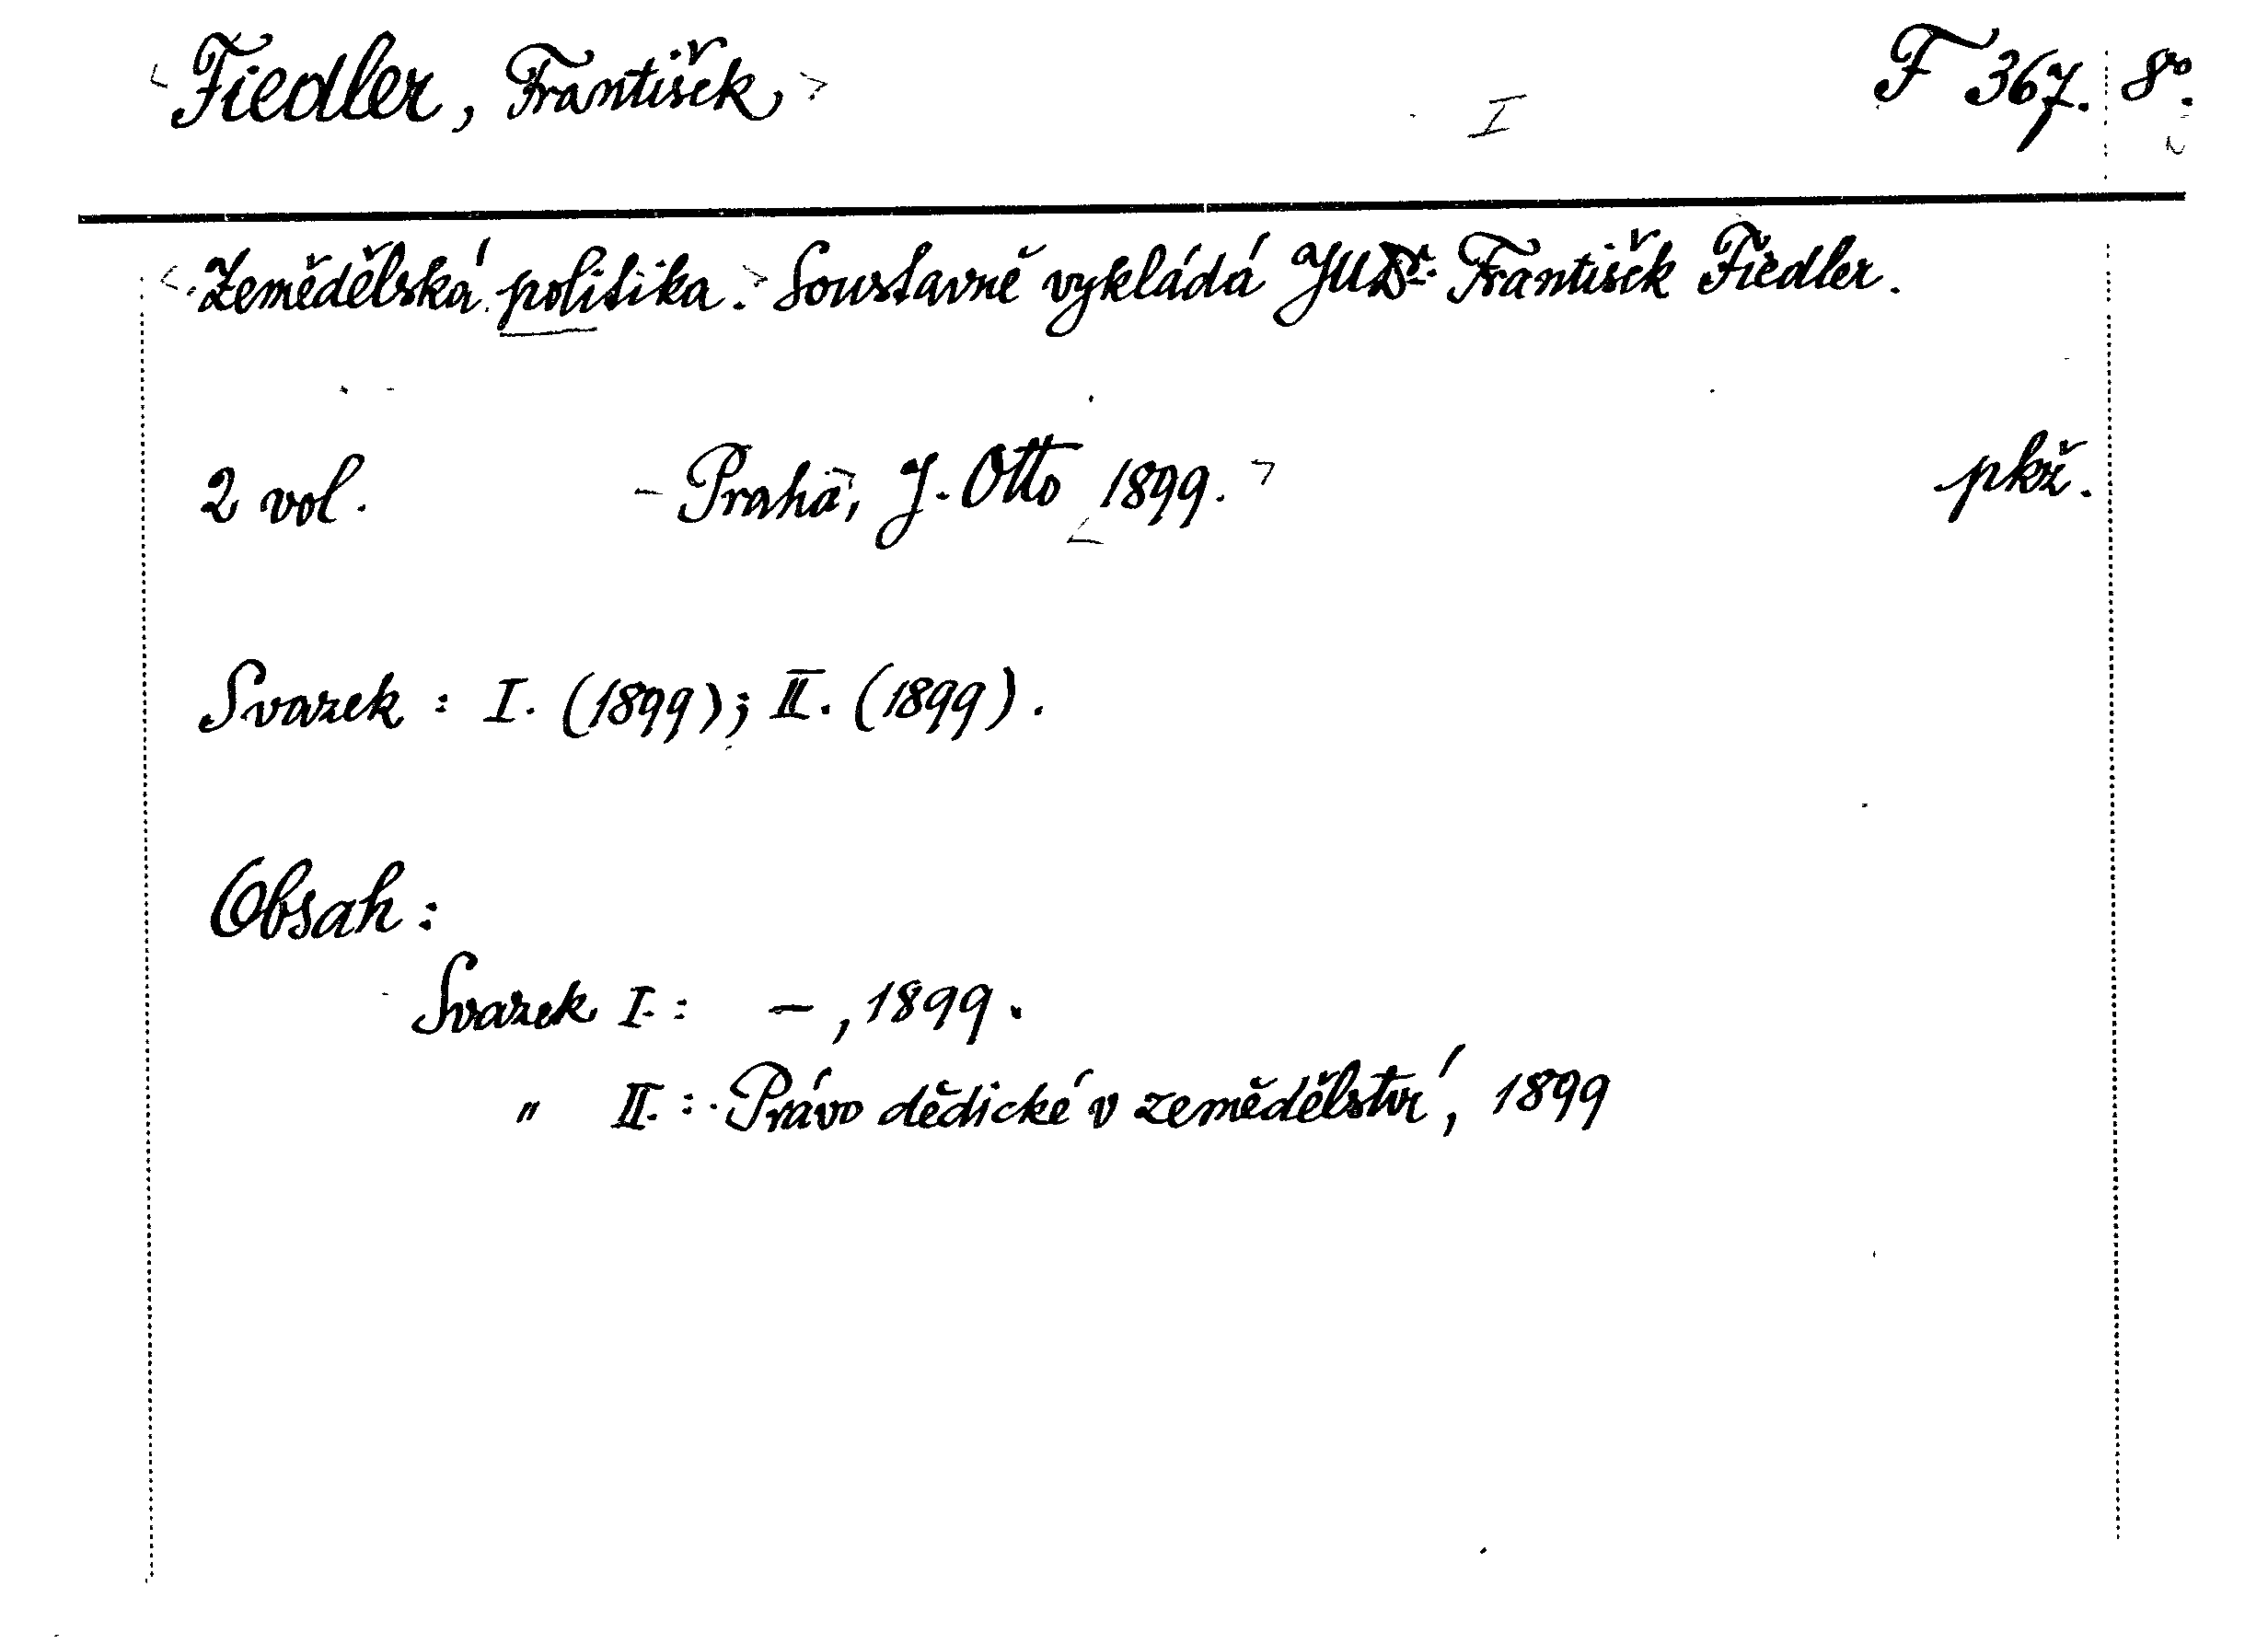 Fiedler, František I F 367. 8°.
Zemědělská politika. Soustavně vykládá JUDr. František Fiedler.
2 vol. – Praha, J. Otto 1899. pkž.
Svazek : I. (1899); II. (1899).
Obsah :
Svazek I. : –, 1899.
" II. : Právo dědické v zemědělství, 1899